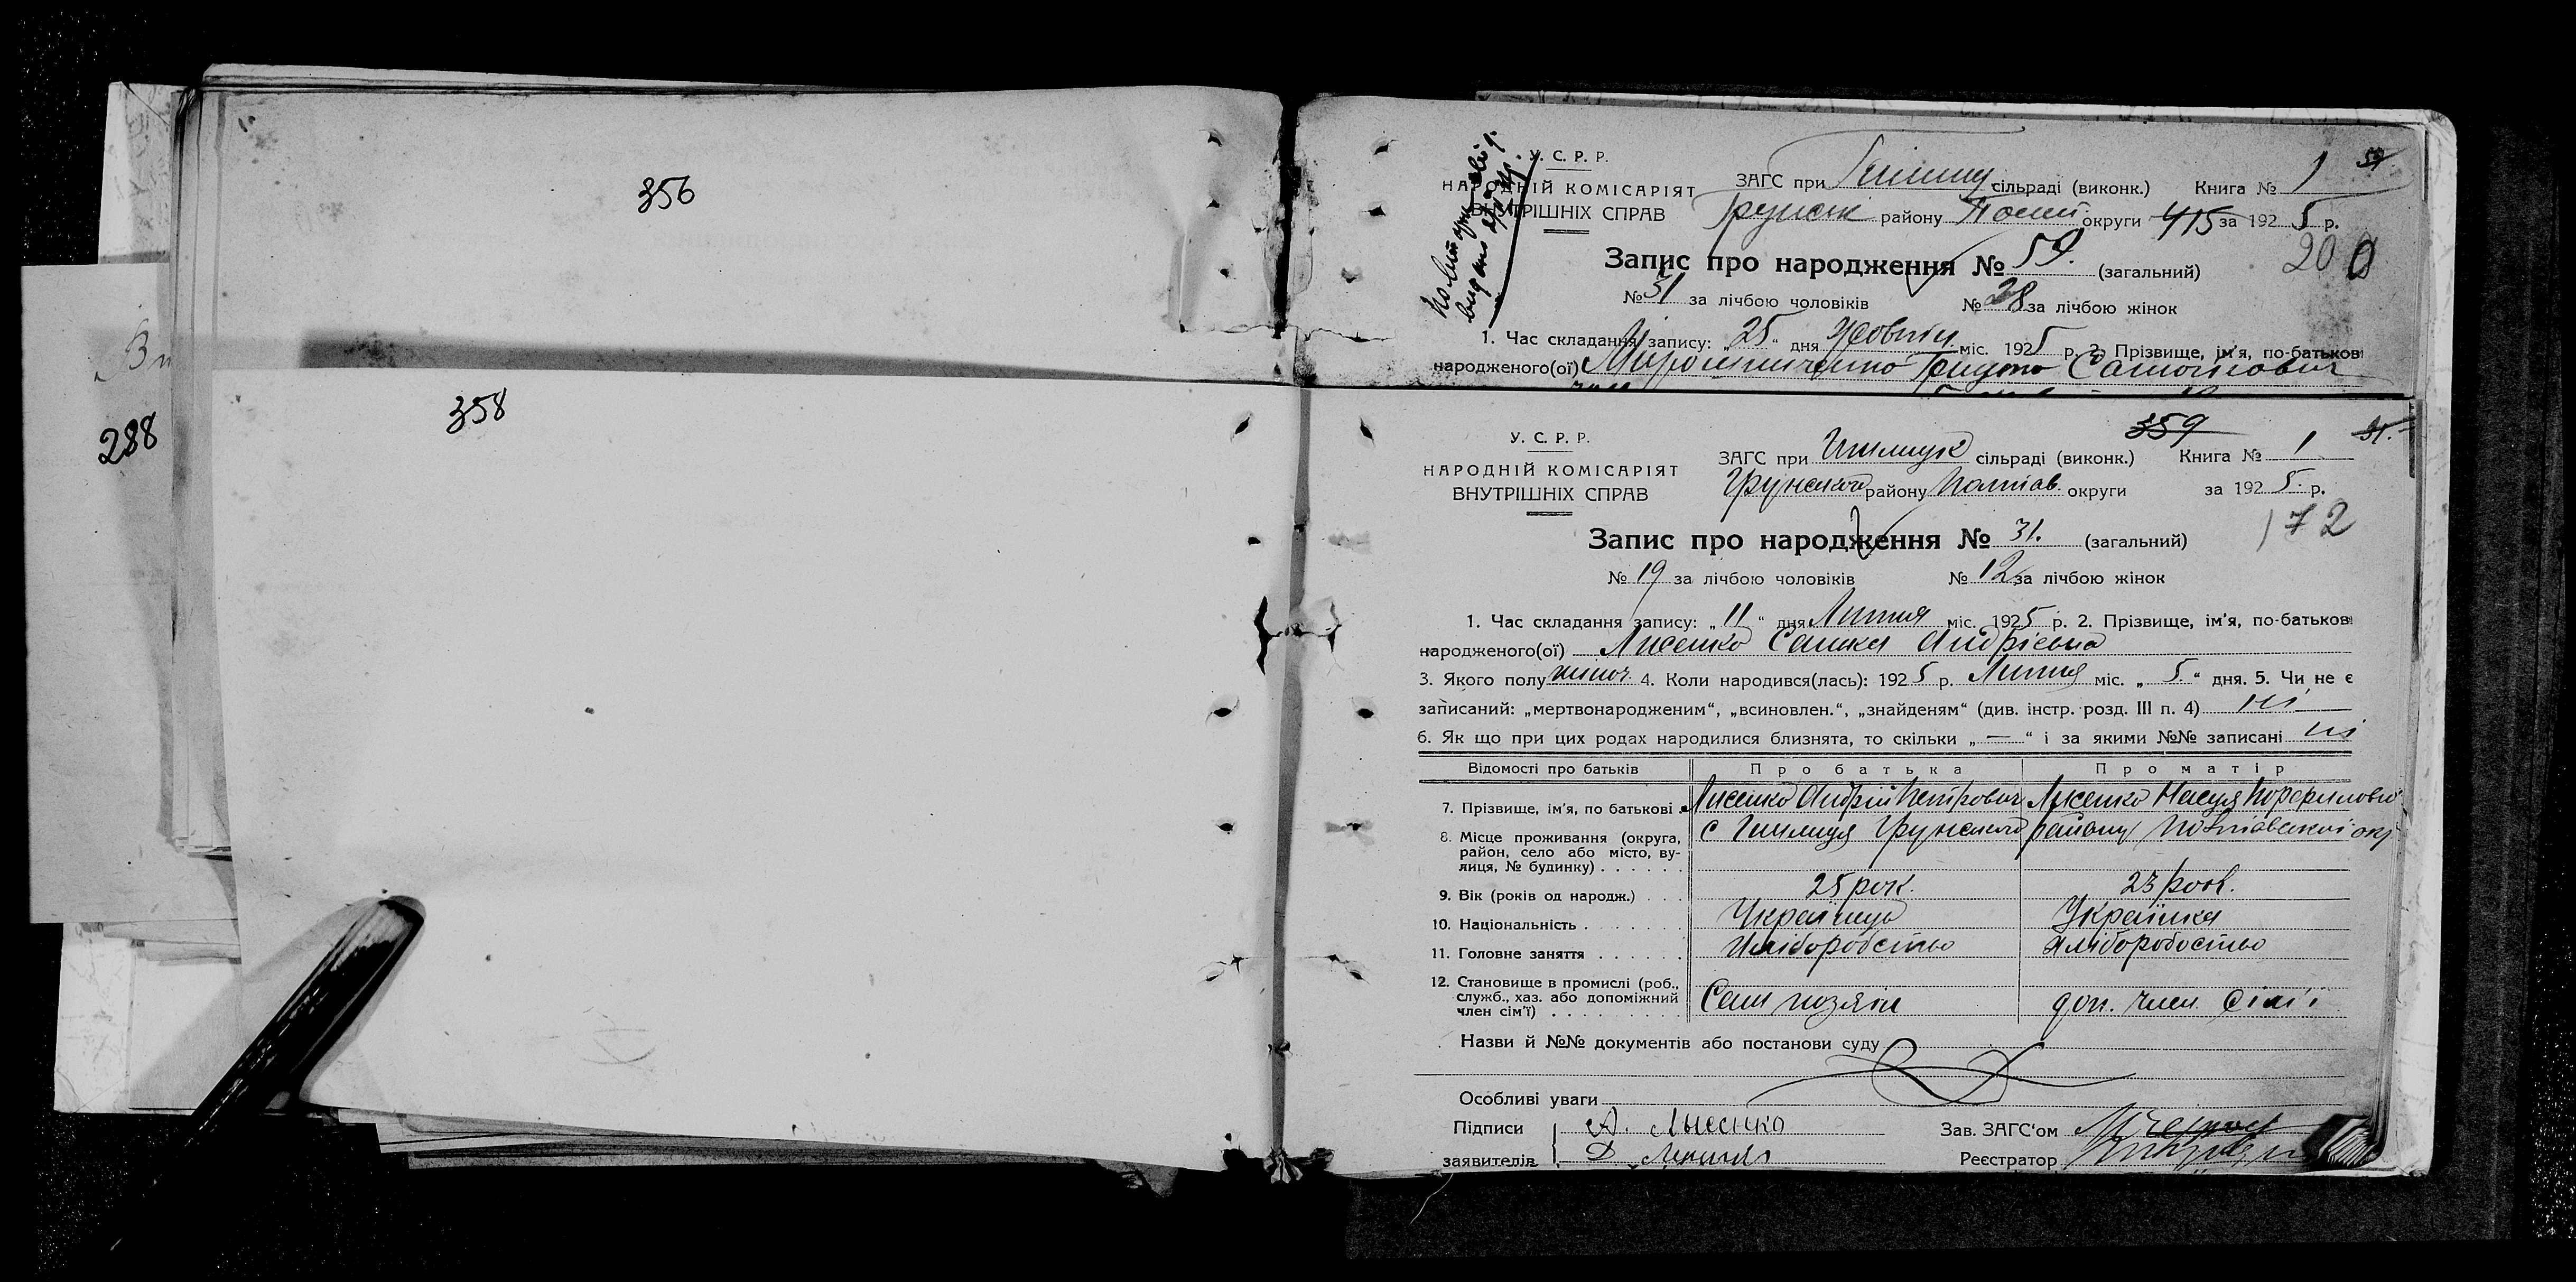 356
358
288
У. С. Р. Р.
НАРОДНІЙ КОМІСАРІЯТ
ВНУТРІШНІХ СПРАВ
ЗАГС при сільраді (виконк.) Книга № 1 59
району округи 415 за 1925 р.
Запис про народження № 59. (загальний)
200
№ 31 за лічбою чоловіків № 28 за лічбою жінок
1. Час складання запису: „25“ дня Жовтн. міс. 1925 р. 2. Прізвище, ім'я, по-батькові
народженого(ої) Мирошниченко
359
31.
У. С. Р. Р.
НАРОДНІЙ КОМІСАРІЯТ
ВНУТРІШНІХ СПРАВ
ЗАГС при сільраді (виконк.) Книга № 1
Грунського району Полтав. округи за 1925 р.
172
Запис про народження № 31. (загальний)
№ 19 за лічбою чоловіків № 12 за лічбою жінок
1. Час складання запису: „11“ дня Липня міс. 1925 р. 2. Прізвище, ім'я, по-батькові
народженого(ої) Лисенко Андрієвна
3. Якого полу жіноч. 4. Коли народився(лась): 1925 р. Липня міс. „5.“ дня. 5. Чи не є
записаний: „мертвонародженим“, „всиновлен.“, „знайденям“ (див. інстр. розд. III п. 4) ні
6. Як що при цих родах народилися близнята, то скільки „—“ і за якими №№ записані ні
Відомості про батьків Про батька Про матір
7. Прізвище, ім'я, по батькові Лисенко Андрій Петрович Лисенко
8. Місце проживання (округа, район, село або місто, вулиця, № будинку) с Грунського району Полтавської окр
9. Вік (років од народж.) 25 рок. 23 рок.
10. Національність Українець Українка
11. Головне заняття Хліборобство Хліборобство
12. Становище в промислі (роб., служб., хаз. або допоміжний член сім'ї) Сам хозяін доп. член сім'ї
Назви й №№ документів або постанови суду
Особливі уваги
Підписи А. Лысенко Зав. ЗАГС'ом
заявителів Д. Реєстратор